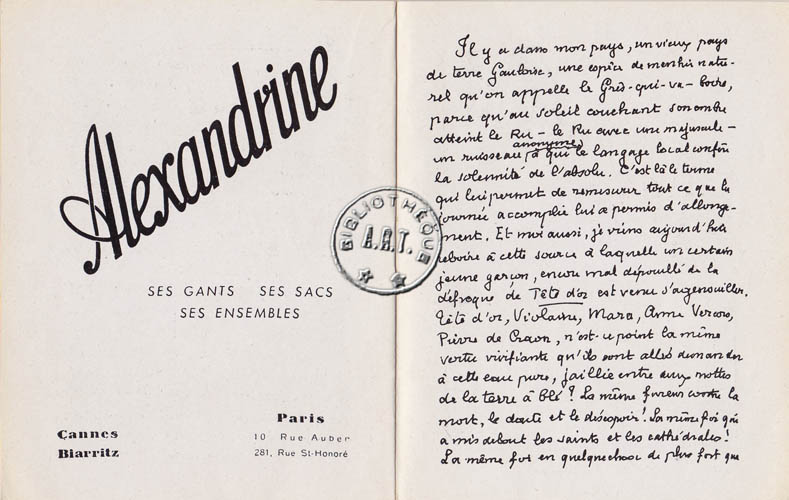 Alexandrine
SES GANTS SES SACS
SES ENSEMBLES
Cannes
Biarritz
Paris
10 Rue Auber
281, Rue St-Honoré
BIBLIOTHÈQUE
A.R.T.
Il y a dans mon pays, un vieux pays
de terre Gauloise, une espèce de menhir natu-
rel qu'on appelle le Grès-qui-va-boire,
parce qu'au soleil couchant son ombre
atteint le Ru - le Ru avec une majuscule -
un ruisseau anonyme à qui le langage local confère
la solennité de l'absolu. C'est là le terme
qui lui permet de remesurer tout ce que la
journée accomplie lui a permis d'allonge-
ment. Et moi aussi, je viens aujourd'hui
reboire à cette source à laquelle un certain
jeune garçon, encore mal dépouillé de la
défroque de Tête d'or est venu s'agenouiller.
Tête d'or, Violaine, Mara, Anne Vercors,
Pierre de Craon, n'est-ce point la même
vertu vivifiante qu'ils sont allés demander
à cette eau pure, jaillie entre deux mottes
de la terre à blé ? La même fureur contre la
mort, le doute et le désespoir ! La même foi qui
a mis debout les saints et les cathédrales !
La même foi en quelque chose de plus fort que